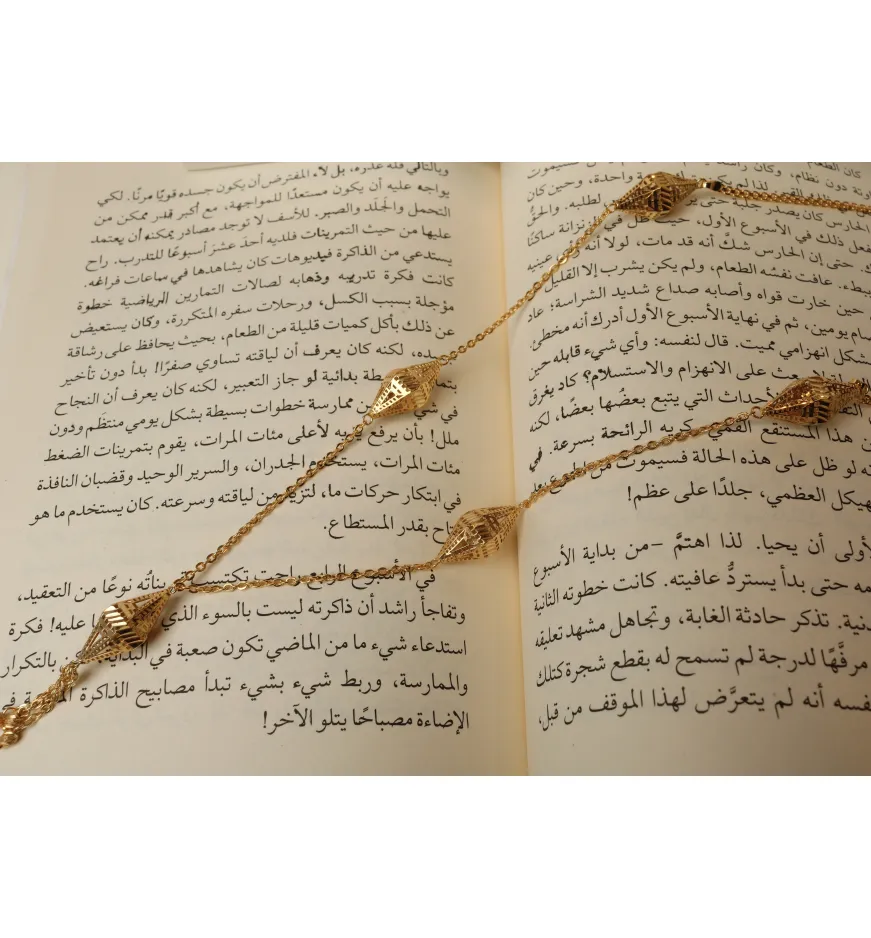 كان الطعام
ونة دون نظام، وكان راشد
واحدة، وحين كان
الحارس كان يصدر جلبة حتى
لطلبه. والحق
فعل ذلك في الأسبوع الأول، حيث ظل في الزنزانة ساكنًا
حتى إن الحارس شكَّ أنه قد مات، لولا أنه
عينيه
ببطء. عافت نفسُه الطعام، ولم يكن يشرب إلا القليل
حين خارت قواه وأصابه صداع شديد الشراسة؛ عاد
يومين، ثم في نهاية الأسبوع الأول أدرك أنه مخطئ
بشكل انهزامي مميت. قال لنفسه: وأي شيء قابله حين
يبعث على الانهزام والاستسلام؟ كاد يغرق
الأحداث التي يتبع بعضُها بعضًا، لكنه
هذا المستنقع القمي
كريه الرائحة بسرعة. في
لو ظل على هذه الحالة فسيموت من
هيكل العظمي، جلدًا على عظم!
أولى أن يحيا. لذا اهتمَّ –من بداية الأسبوع
حتى بدأ يستردُّ عافيته. كانت خطوته الثانية
دنية. تذكر حادثة الغابة، وتجاهل مشهد تعليقه
مرفَّهًا لدرجة لم تسمح له بقطع شجرة كتلك
نفسه أنه لم يتعرَّض لهذا الموقف من قبل،
وبالتالي فله عذره، بل لا، المفترض أن يكون جسده قويًا مرنًا. لكي
يواجه عليه أن يكون مستعدًا للمواجهة، مع أكبر قدر ممكن من
التحمل والجَلَد والصبر. للأسف لا توجد مصادر يمكنه أن يعتمد
عليها من حيث التمرينات فلديه أحدَ عشرَ أسبوعًا للتدرب. راح
يستدعي من الذاكرة فيديوهات كان يشاهدها في ساعات فراغه.
كانت فكرة تدريبه وذهابه لصالات التمارين الرياضية خطوة
مؤجلة بسبب الكسل، ورحلات سفره المتكررة، وكان يستعيض
عن ذلك بأكل كميات قليلة من الطعام، بحيث يحافظ على رشاقة
جسده، لكنه كان يعرف أن لياقته تساوي صفرًا! بدأ دون تأخير
بدائية لو جاز التعبير، لكنه كان يعرف أن النجاح
في
ممارسة خطوات بسيطة بشكل يومي منتظَم ودون
ملل! بأن يرفع
لأعلى مئات المرات، يقوم بتمرينات الضغط
مئات المرات، يستخدم الجدران، والسرير الوحيد وقضبان النافذة
في ابتكار حركات ما، لتزيد من لياقته وسرعته. كان يستخدم ما هو
متاح بقدر المستطاع.
في الأسبوع الرابع راحت تكتسب
نوعًا من التعقيد،
وتفاجأ راشد أن ذاكرته ليست بالسوء الذي
عليه! فكرة
استدعاء شيء ما من الماضي تكون صعبة في البداية،
بالتكرار
والممارسة، وربط شيء بشيء تبدأ مصابيح الذاكرة
في
الإضاءة مصباحًا يتلو الآخر!